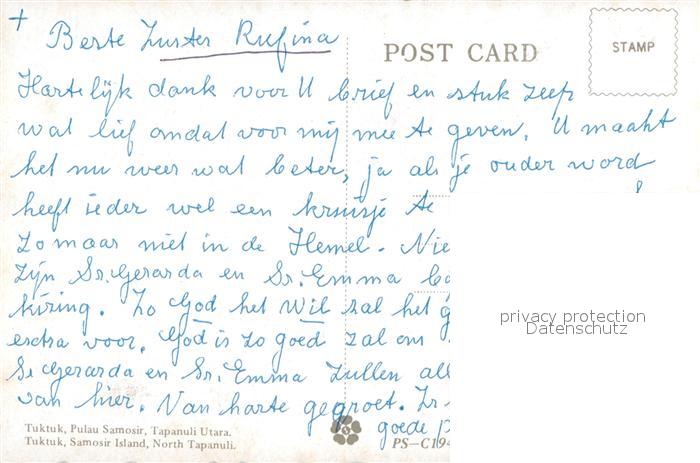 +
Beste Zuster Rufina
POST CARD
STAMP
Hartelijk dank voor U brief en stuk zeep
wat lief om dat voor mij mee te geven. U maakt
het nu weer wat beter, ja als je ouder word
heeft ieder wel een kruisje te
zo maar niet in de Hemel. Nie
Zijn Sr. Gerarda en Sr. Emma
Zo God het wil zal het g
extra voor. God is zo goed zal om
Sr Gerarda en Sr. Emma zullen all
van hier. Van harte gegroet. Zr
goede
privacy protection
Datenschutz
Tuktuk, Pulau Samosir, Tapanuli Utara.
Tuktuk, Samosir Island, North Tapanuli.
PS-C194